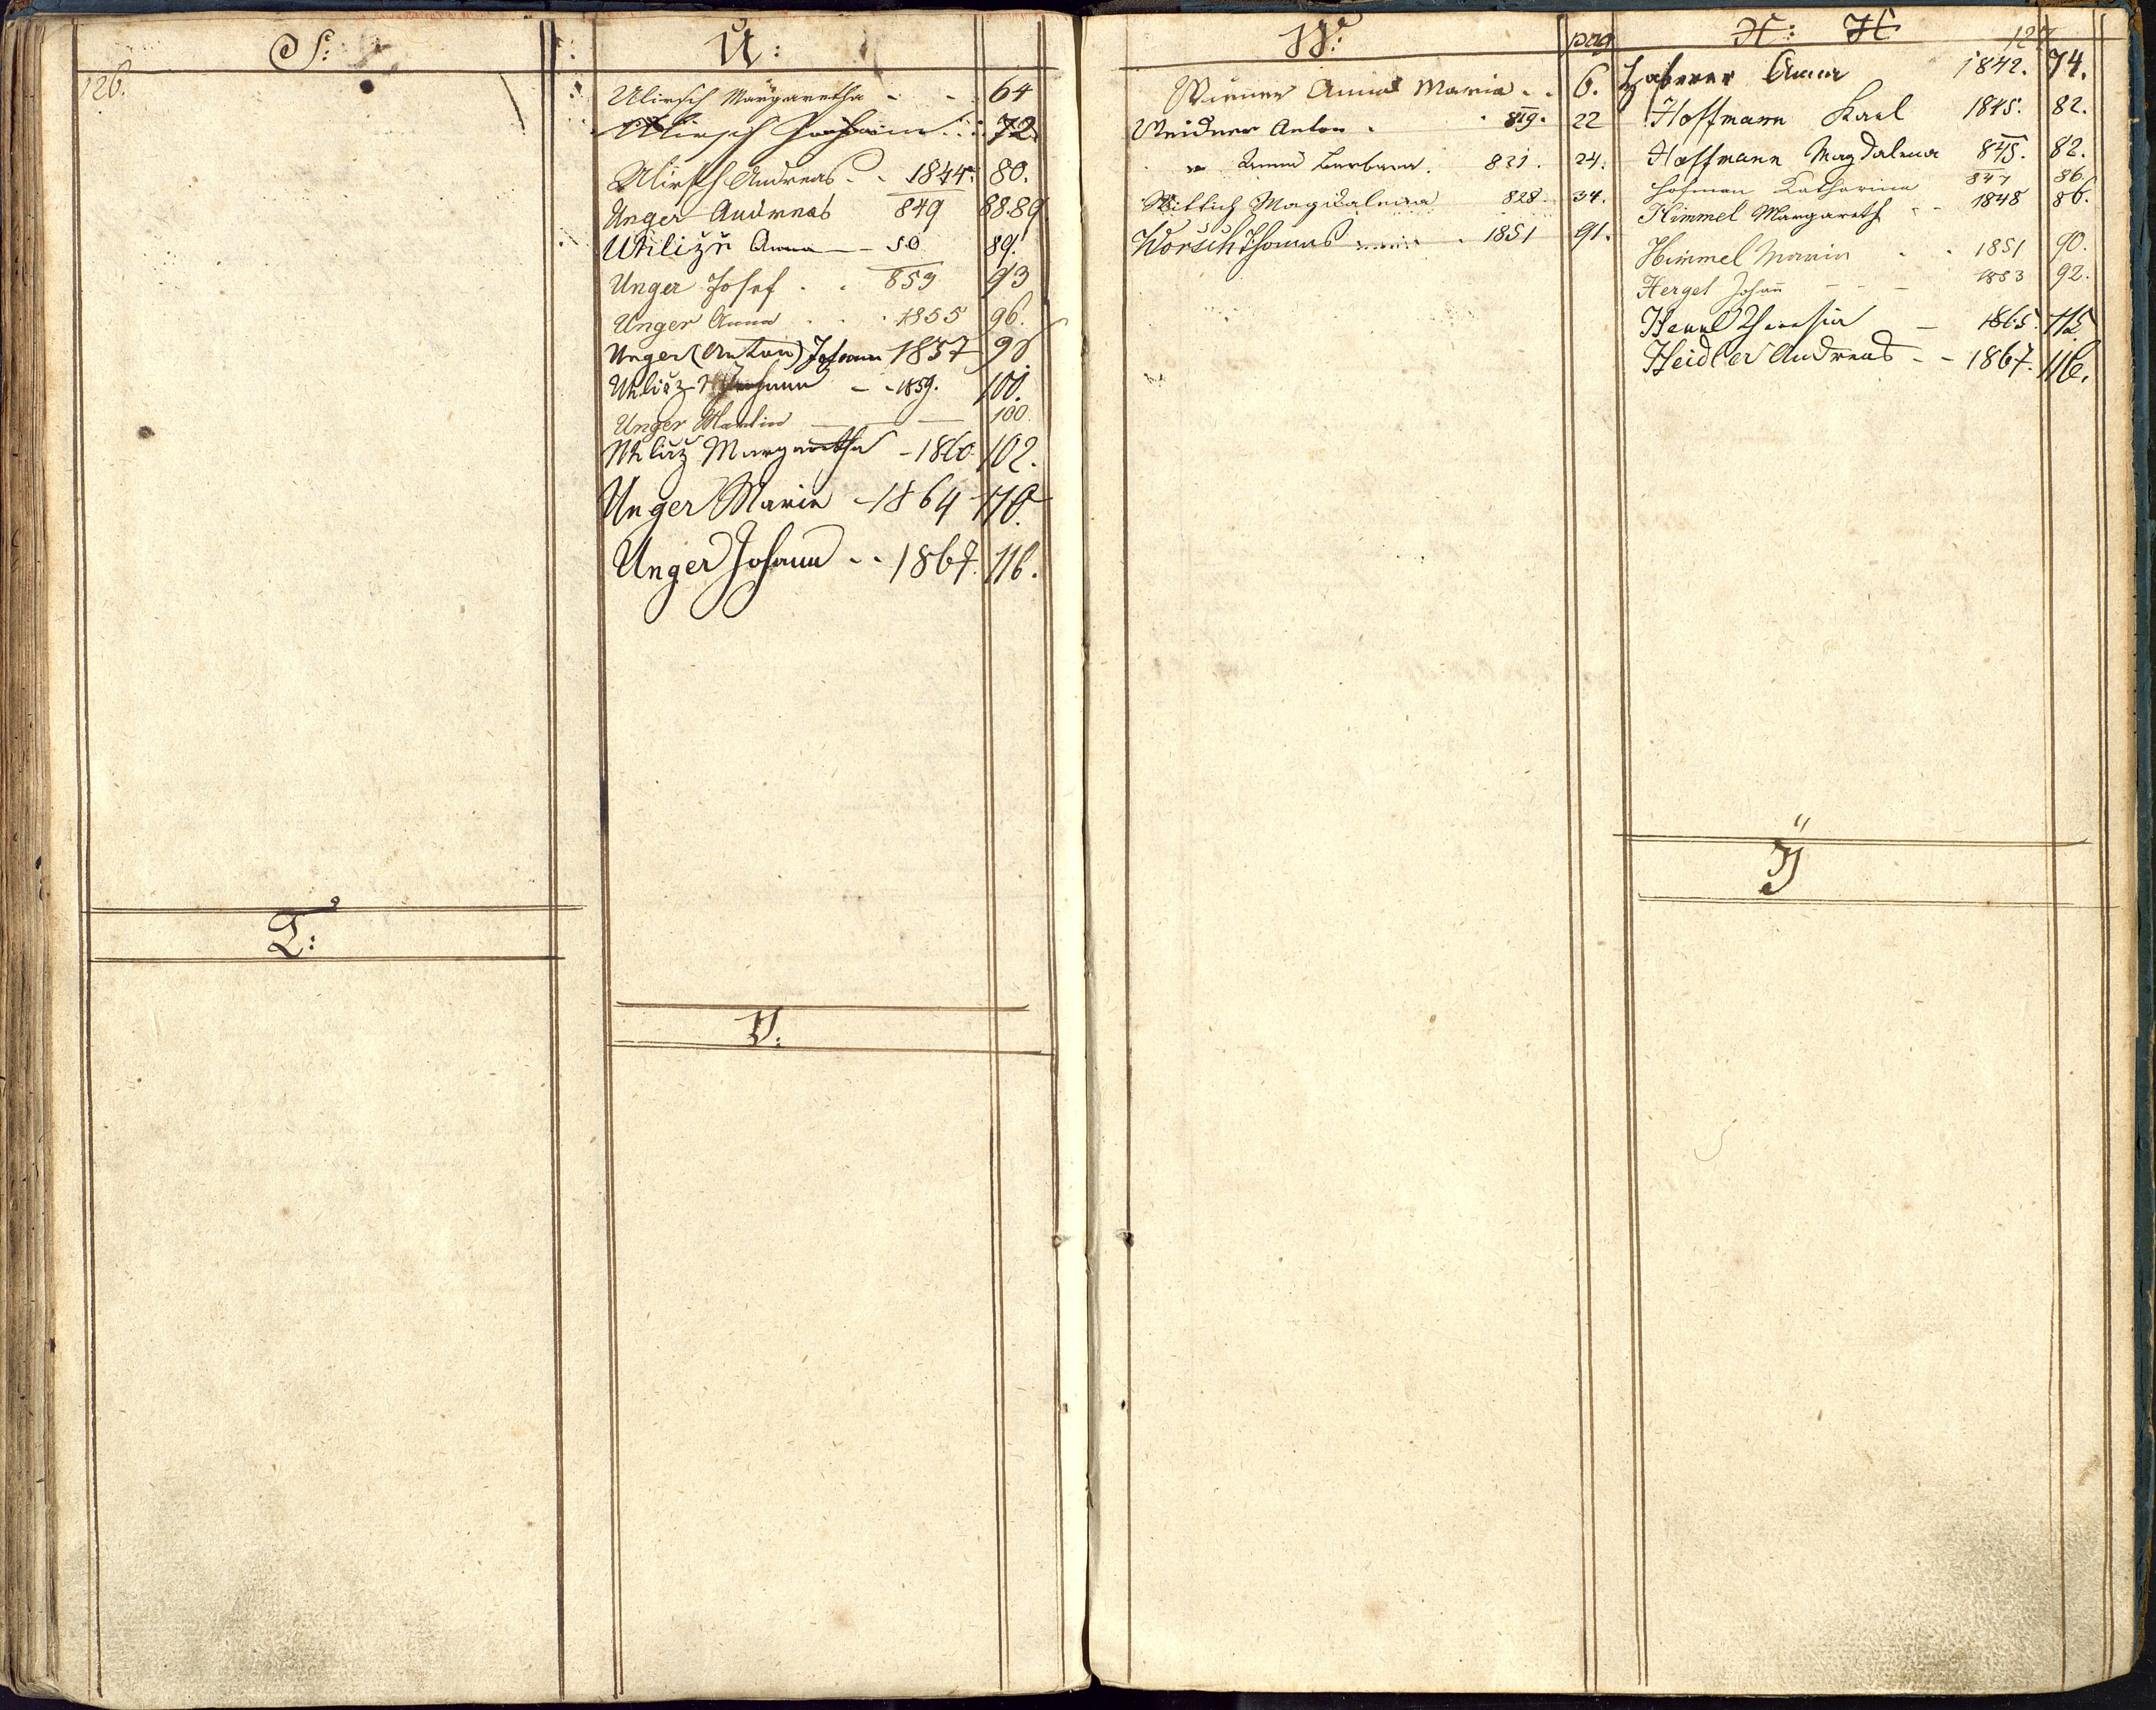 126.
S:
T:
U:
Ulirsch Margaretha - - 64
Ulirsch 72
Ulirsch Andreas - - 1844. 80.
Unger Andreas 849 88.89
Uhlizn Anna — 50 89.
Unger Josef . . 853 93
Unger Anna . . . 1855 96.
Unger (Anton) Johann 1857 98
Uhliz Johann - - 1859. 100.
Unger Martin — — 100.
Uhliz Margaretha - 1860. 102.
Unger Maria - 1864 110.
Unger Johann - - 1867. 116.
V:
W: pag
Wiener Anna Maria . . 6.
Weidner Anton . . 819. 22
" Anna Barbara. 821. 24.
Wittich Magdalena 828. 34.
Worsch Thomas . 1851 91.
H: H 127
Haberer Anna 1842. 74.
Hoffmann Karl 1845. 82.
Hoffmann Magdalena 845. 82.
Hofman Katharina 847 86.
Himmel Margareth - - 1848 86.
Himmel Maria . . 1851 90.
Herget Johañ - - - 1853 92.
Theresia — 1865. 112.
Heidler Andreas - - 1867. 116.
Ÿ